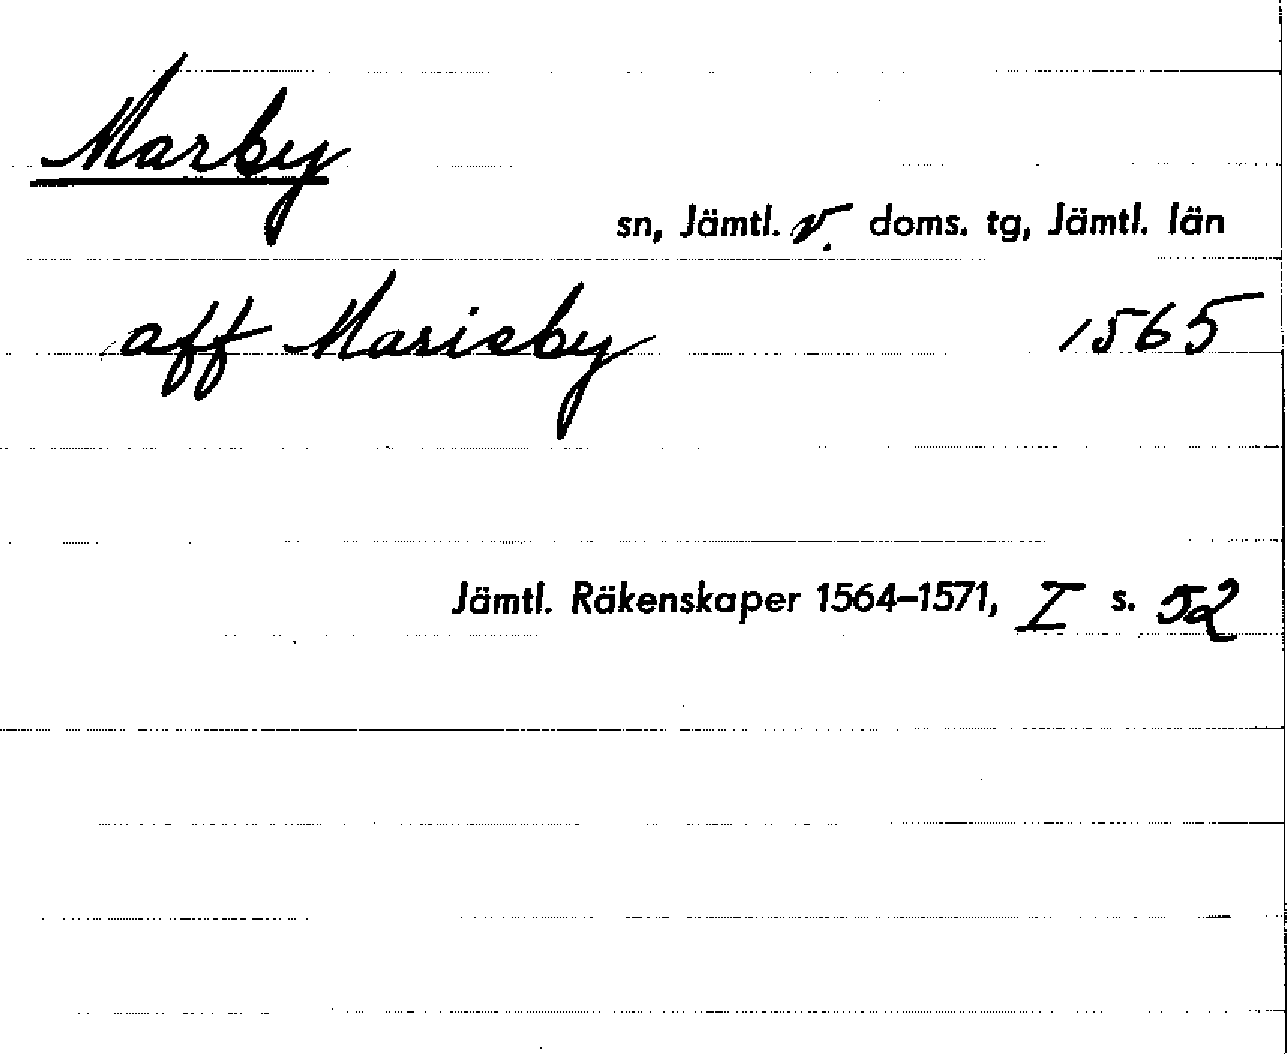 Marby
sn, Jämtl. v. doms. tg, Jämtl. län
aff Marieby 1565
Jämtl. Räkenskaper 1564–1571, I s. 52